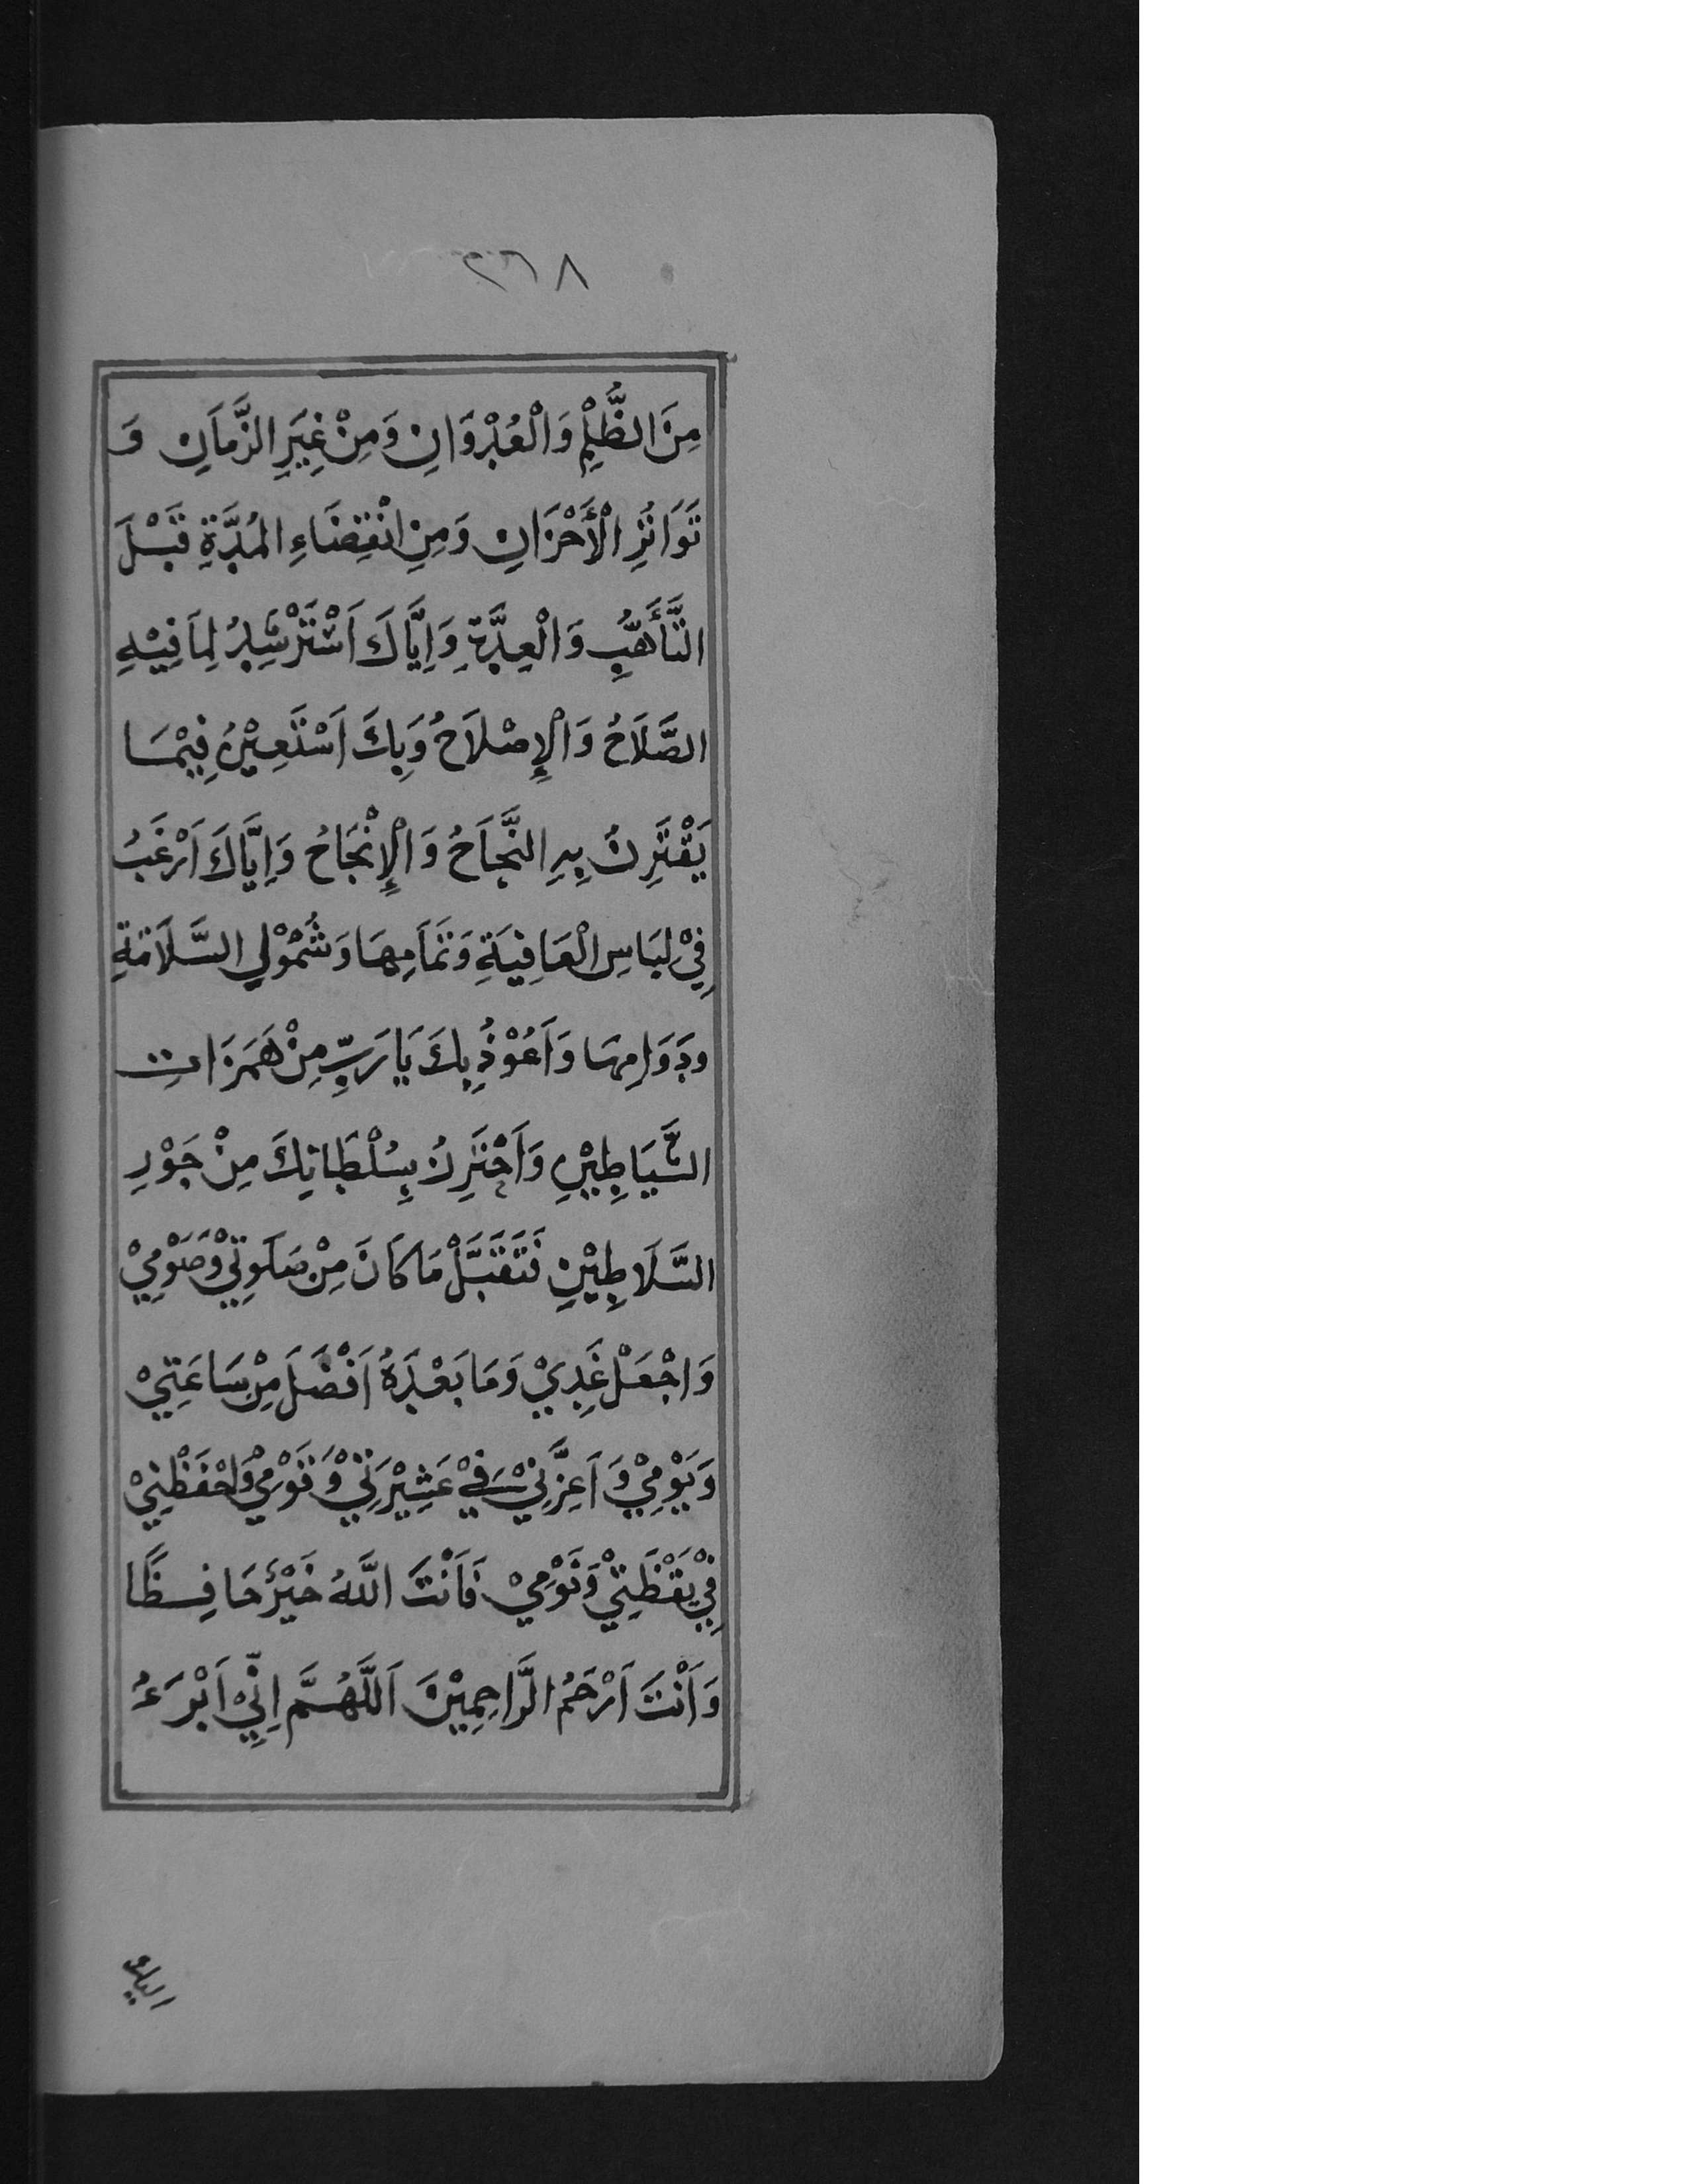 ٢٦٨
مِنَ الظُّلْمِ وَالْعُدْوَانِ وَمِنْ غِيَرِ الزَّمَانِ وَ
تَوَاتُرِ الْأَحْزَانِ وَمِنِ انْقِضَاءِ المُدَّةِ قَبْلَ
التَّأَهُّبِ وَالْعِدَّةِ وَاِيَّاكَ اَسْتَرْشِدُ لِمَا فِيْهِ
الصَّلَاحُ وَالْإِصْلَاحُ وَبِكَ اَسْتَعِيْنُ فِيْمَا
يَقْتَرِنُ بِهِ النَّجَاحُ وَالْإِنْجَاحُ وَاِيَّاكَ اَرْغَبُ
فِيْ لِبَاسِ الْعَافِيَةِ وَتَمَامِهَا وَشُمُوْلِ السَّلَامَةِ
ودَوَامِهَا وَاَعُوْذُ بِكَ يَا رَبِّ مِنْ هَمَزَاتِ
الشَّيَاطِيْنِ وَاَحْتَرِزُ بِسُلْطَانِكَ مِنْ جَوْرِ
السَّلَاطِيْنِ فَتَقَبَّلْ مَا كَانَ مِنْ صَلَوتِيْ وَصَوْمِيْ
وَاجْعَلْ غَدِيْ وَمَا بَعْدَهُ اَفْضَلَ مِنْ سَاعَتِيْ
وَيَوْمِيْ وَاَعِزَّنِيْ فِيْ عَشِيْرَتِيْ وَقَوْمِيْ وَاحْفَظْنِيْ
فِيْ يَقْظَتِيْ وَنَوْمِيْ فَاَنْتَ اللَّهُ خَيْرٌ حَافِظًا
وَاَنْتَ اَرْحَمُ الرَّاحِمِيْنَ اَللَّهُمَّ اِنِّيْ اَبْرَءُ
اليك